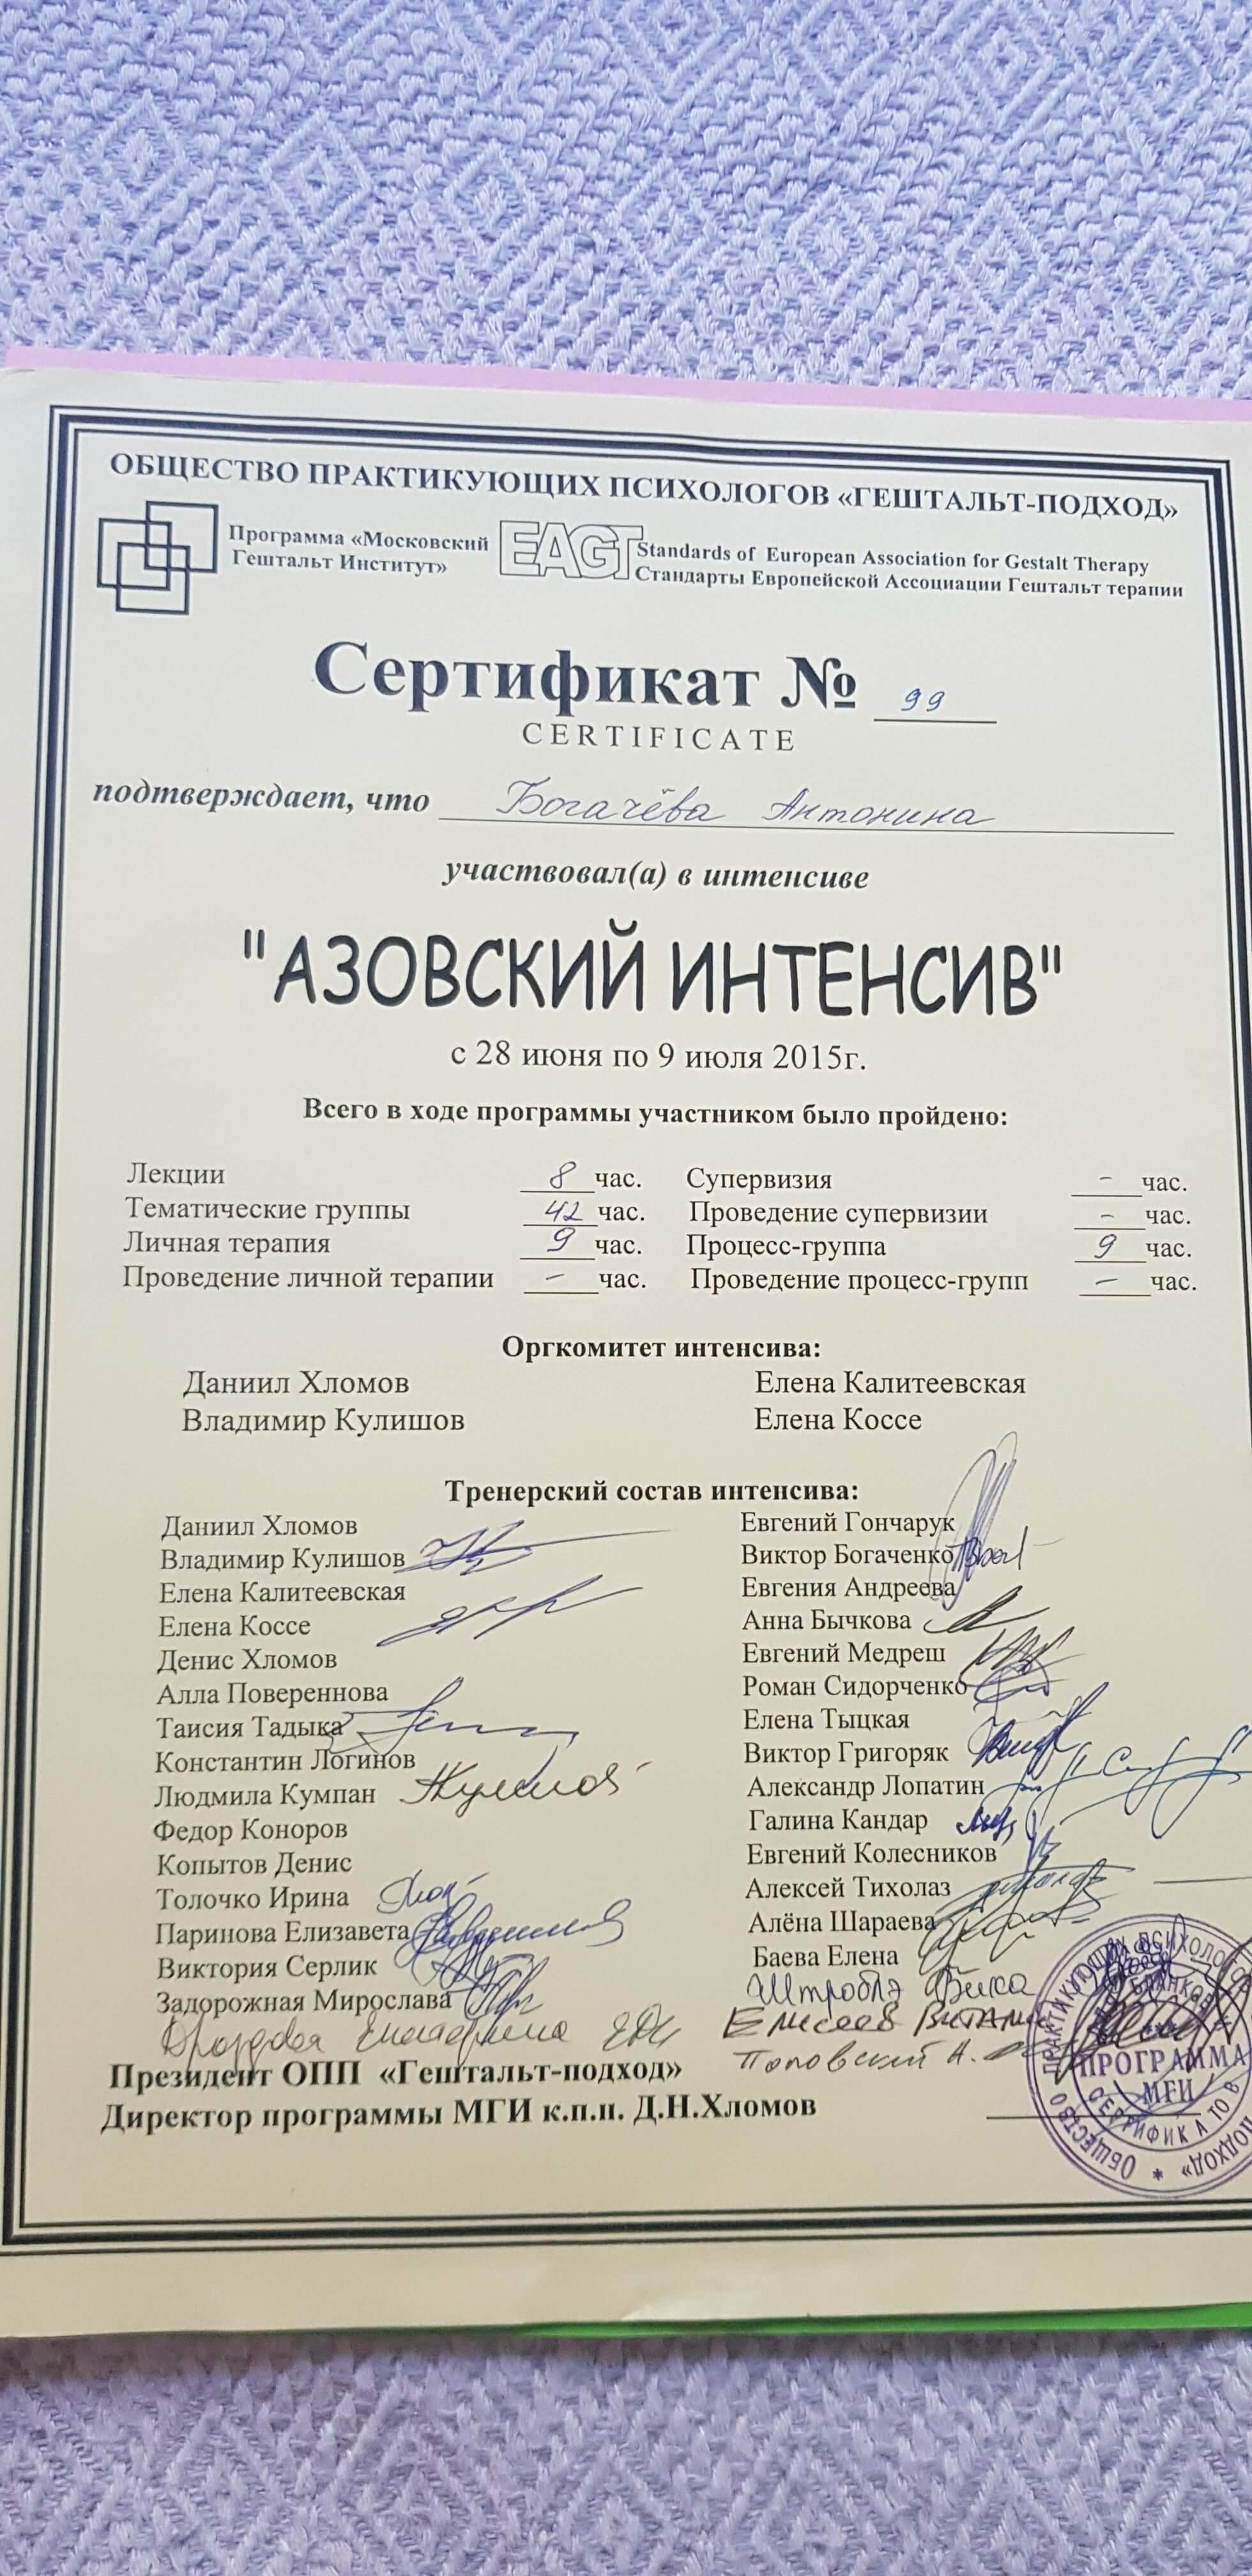 ОБЩЕСТВО ПРАКТИКУЮЩИХ ПСИХОЛОГОВ «ГЕШТАЛЬТ-ПОДХОД»
Программа «Московский
Гештальт Институт»
EAGT
Standards of European Association for Gestalt Therapy
Стандарты Европейской Ассоциации Гештальт терапии
Сертификат № 99
CERTIFICATE
подтверждает, что Богачёва Антонина
участвовал(а) в интенсиве
"АЗОВСКИЙ ИНТЕНСИВ"
с 28 июня по 9 июля 2015г.
Всего в ходе программы участником было пройдено:
Лекции 8 час. Супервизия - час.
Тематические группы 42 час. Проведение супервизии - час.
Личная терапия 9 час. Процесс-группа 9 час.
Проведение личной терапии - час. Проведение процесс-групп - час.
Оргкомитет интенсива:
Даниил Хломов Елена Калитеевская
Владимир Кулишов Елена Коссе
Тренерский состав интенсива:
Даниил Хломов Евгений Гончарук
Владимир Кулишов Виктор Богаченко
Елена Калитеевская Евгения Андреева
Елена Коссе Анна Бычкова
Денис Хломов Евгений Медреш
Алла Повереннова Роман Сидорченко
Таисия Тадыка Елена Тыцкая
Константин Логинов Виктор Григоряк
Людмила Кумпан Александр Лопатин
Федор Коноров Галина Кандар
Копытов Денис Евгений Колесников
Толочко Ирина Алексей Тихолаз
Паринова Елизавета Алёна Шараева
Виктория Серлик Баева Елена
Задорожная Мирослава Штробля Вика
Дроздова Екатерина Елисеев Виталий
Поповский А.
Президент ОПП «Гештальт-подход»
Директор программы МГИ к.п.н. Д.Н.Хломов
ПРОГРАММА
МГИ